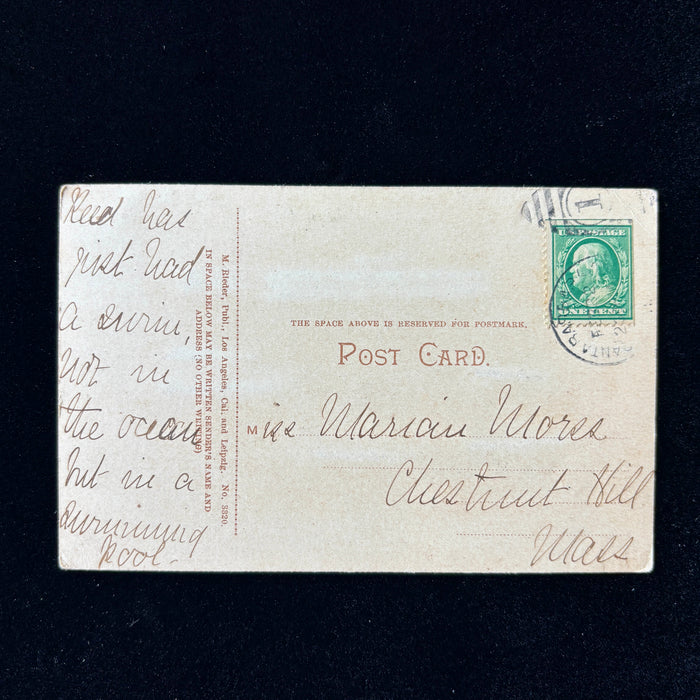 Reed has
just had
a swim,
not in
the ocean
but in a
swimming
pool.
M. Rieder, Publ., Los Angeles, Cal. and Leipzig. No. 3320.
IN SPACE BELOW MAY BE WRITTEN SENDER'S NAME AND
ADDRESS (NO OTHER WRITING)
THE SPACE ABOVE IS RESERVED FOR POSTMARK.
POST CARD.
Miss Marian Morss
Chestnut Hill
Mass
1
U.S. POSTAGE
ONE CENT
SANTA BARB